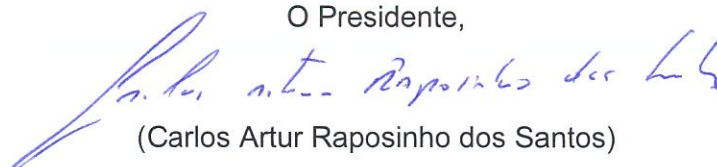 O Presidente,
Carlos Artur Raposinho dos Santos
(Carlos Artur Raposinho dos Santos)